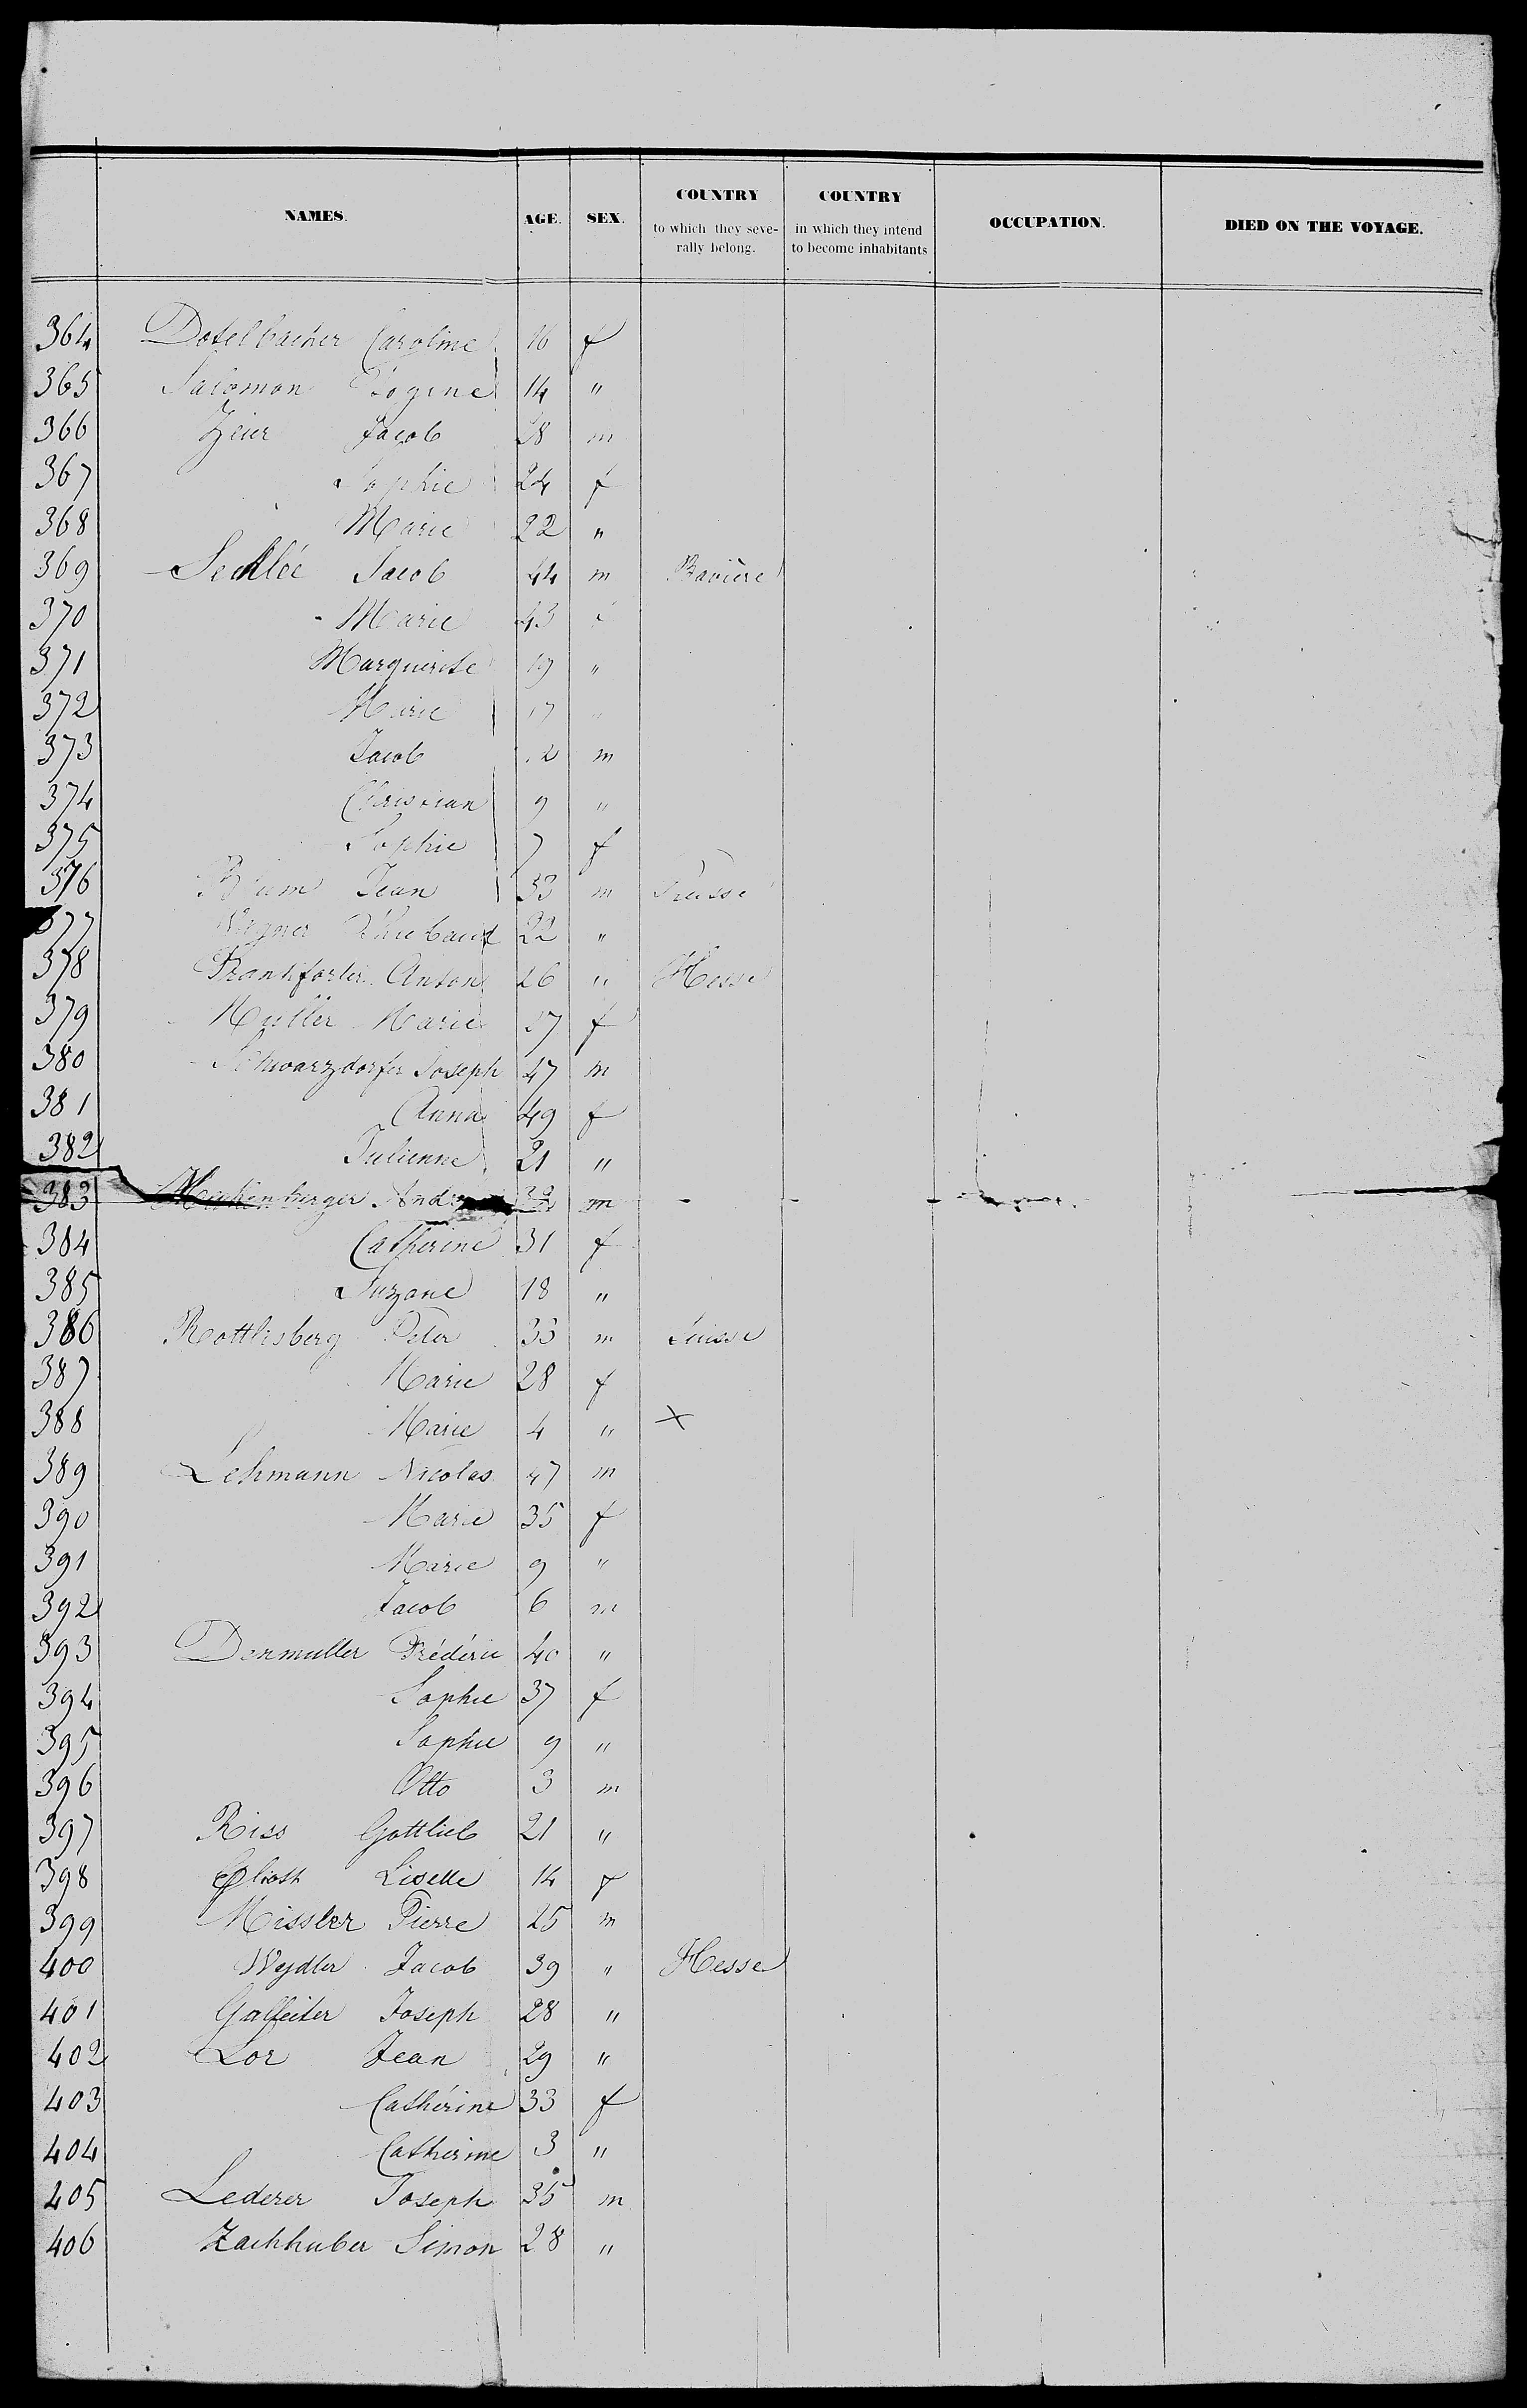 NAMES. AGE. SEX. COUNTRY to which they seve- rally belong. COUNTRY in which they intend to become inhabitants OCCUPATION. DIED ON THE VOYAGE.
364 Dotelbacher Caroline 16 f
365 Salomon Rogine 14 "
366 Zeier Jacob 28 m
367 Sophie 24 f
368 Marie 22 "
369 Jacob 44 m Bavière
370 Marie 43 f
371 Marguerite 19 "
372 Marie 17 "
373 Jacob 12 m
374 Christian 9 "
375 Sophie 7 f
376 Jean 33 m Prusse
377 Wagner Thiebaud 22 "
378 Frankforter Anton 26 " Hesse
379 Muller Marie 37 f
380 Schwarzdorfer Joseph 47 m
381 Anna 49 f
382 Julienne 21 "
383 m
384 Catherine 31 f
385 Suzane 18 "
386 Rottlisberg Peter 33 m Suisse
387 Marie 28 f
388 Marie 4 " X
389 Lehmann Nicolas 47 m
390 Marie 35 f
391 Marie 9 "
392 Jacob 6 m
393 Denmuller Fréderic 40 "
394 Sophie 37 f
395 Sophie 9 "
396 Otto 3 m
397 Riss Gottlieb 21 "
398 Lisette 14 f
399 Missler Pierre 25 m
400 Weydler Jacob 39 " Hesse
401 Galfeiter Joseph 28 "
402 Lor Jean 29 "
403 Cathérine 33 f
404 Catherine 3 "
405 Lederer Joseph 35 m
406 Zachhuber Simon 28 "